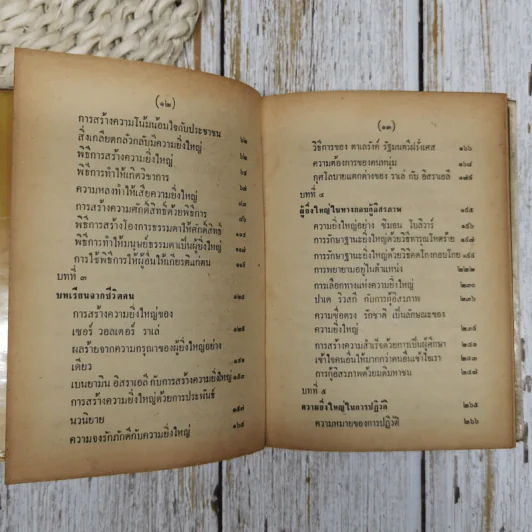 (๑๒)
การสร้างความโน้มน้อมใจกับประชาชน ๖๒
สิ่งเกลียดกลัวกลับมีความยิ่งใหญ่
พิธีการสร้างความยิ่งใหญ่ ๖๕
พิธีการทำให้เกิดวิชาการ
ความหลงทำให้เสียความยิ่งใหญ่ ๗๗
การสร้างความศักดิ์สิทธิ์ด้วยพิธีการ
พิธีการสร้างโองการธรรมดาให้ศักดิ์สิทธิ์
พิธีการทำให้มนุษย์ธรรมดาเป็นผู้ยิ่งใหญ่
การใช้พิธีการให้ผู้อื่นให้เกียรติแก่ตน
บทที่ ๓
บทเรียนจากชีวิตคน ๑๒๔
การสร้างความยิ่งใหญ่ของ
เซอร์ วอลเตอร์ ราเล่ ๑๒๕
ผลร้ายจากความกรุณาของผู้ยิ่งใหญ่อย่าง
เดียว ๑๔๑
เบนยามิน อิสราเอลี กับการสร้างความยิ่งใหญ่ ๑๕๓
การสร้างความยิ่งใหญ่ด้วยการประพันธ์
นวนิยาย ๑๕๗
ความจงรักภักดีกับความยิ่งใหญ่ ๑๖๕
(๑๓)
วิธีการของ ตาเลรังด์ รัฐมนตรีฝรั่งเศส ๑๖๖
ความต้องการของคนหนุ่ม ๑๖๘
กุศโลบายแตกต่างของ ราเล่ กับ อิสราเอลี ๑๗๕
บทที่ ๔
ผู้ยิ่งใหญ่ในทางกอบกู้อิสรภาพ ๑๙๕
ความยิ่งใหญ่อย่าง ซิมอน โบลิวาร์ ๑๙๖
การรักษาฐานะยิ่งใหญ่ด้วยวิธีทารุณโหดร้าย
การรักษาฐานะยิ่งใหญ่ด้วยวิธีคดโกงคอบโกย
การพยายามอยู่ในตำแหน่ง ๒๒๒
การเลือกทางแห่งความยิ่งใหญ่ ๒๓๐
ปาเด ริวสกี กับการกู้อิสรภาพ ๒๓๖
ความซื่อตรง รักชาติ เป็นลักษณะของ
ความยิ่งใหญ่ ๒๓๙
การสร้างความสำเร็จด้วยการเป็นผู้ศึกษา ๒๔๑
เข้าใจคนอื่นให้มากกว่าคนอื่นเข้าใจเรา ๒๔๓
การกู้อิสรภาพด้วยมติมหาชน ๒๔๗
บทที่ ๕
ความยิ่งใหญ่ในการปฏิวัติ ๒๖๕
ความหมายของการปฏิวัติ ๒๖๖